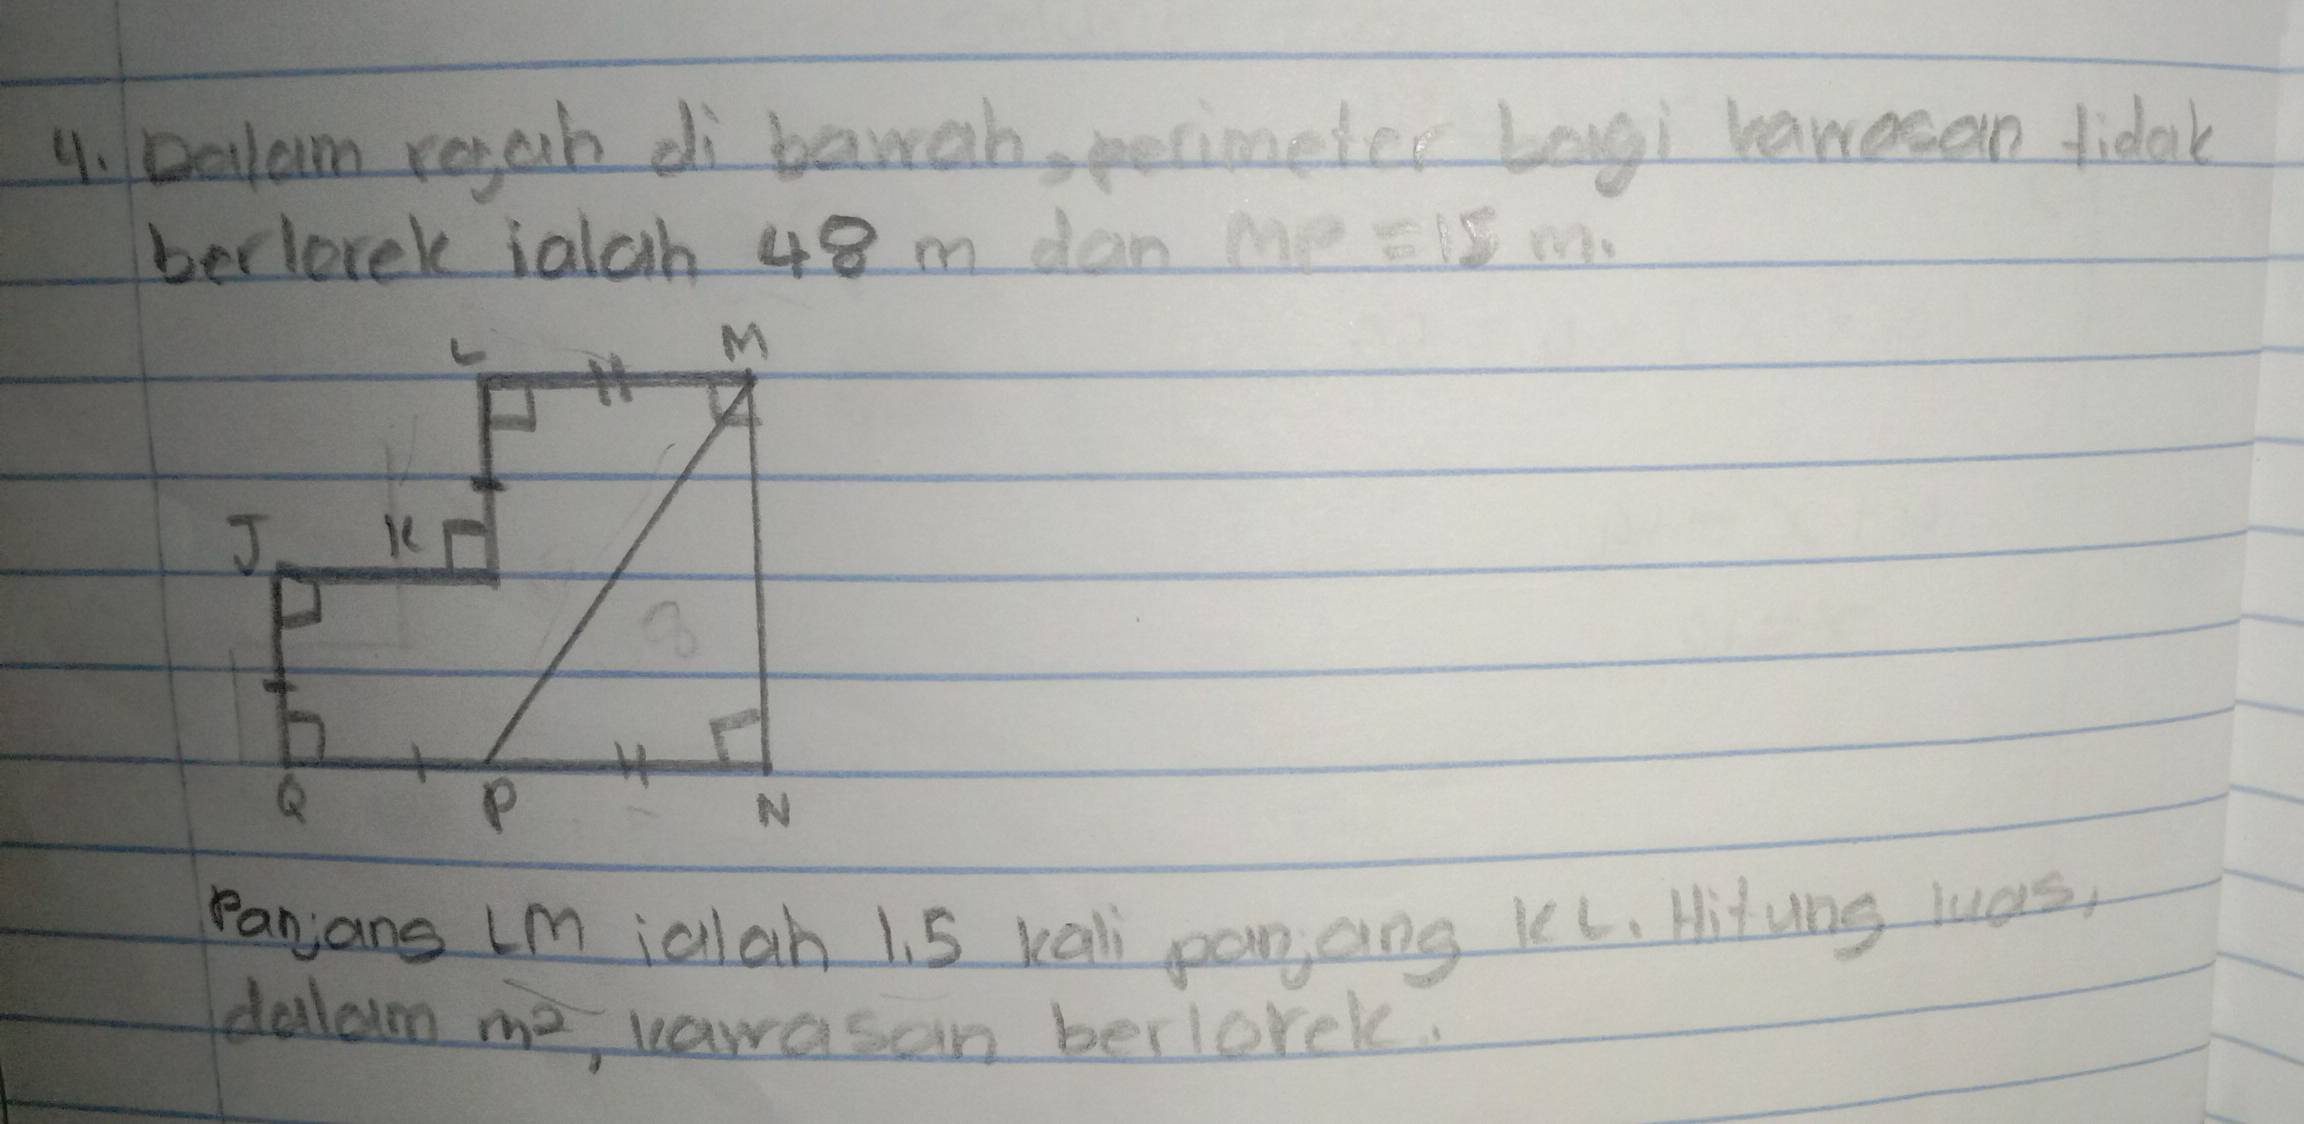 4. Dalam rajah di bawah, perimeter bagi kawasan tidak
berlorek ialah 48 m dan MP = 15 m.
L M
J K
8
Q P N
Panjang LM ialah 1.5 kali panjang KL. Hitung luas,
dalam m², kawasan berlorek.